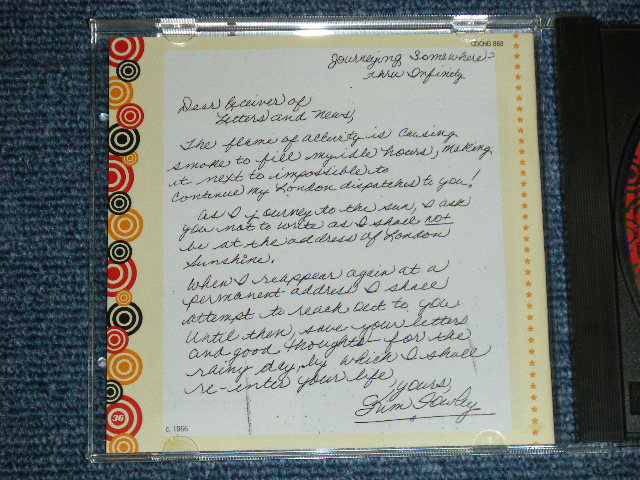 CDCHD 868
Journeying Somewhere:
Thru Infinity
Dear Receiver of
Letters and News,
The flame of activity is causing
smoke to fill my idle hours, making
it next to impossible to
continue my London dispatches to you!
As I journey to the sun, I ask
you not to write as I shall not
be at the address of London
Sunshine.
When I reappear again at a
permanent address, I shall
attempt to reach out to you
Until then, save your letters
and good thoughts for the
rainy day, by which I shall
re-enter your life
yours,
Kim Fowley
36
c. 1966